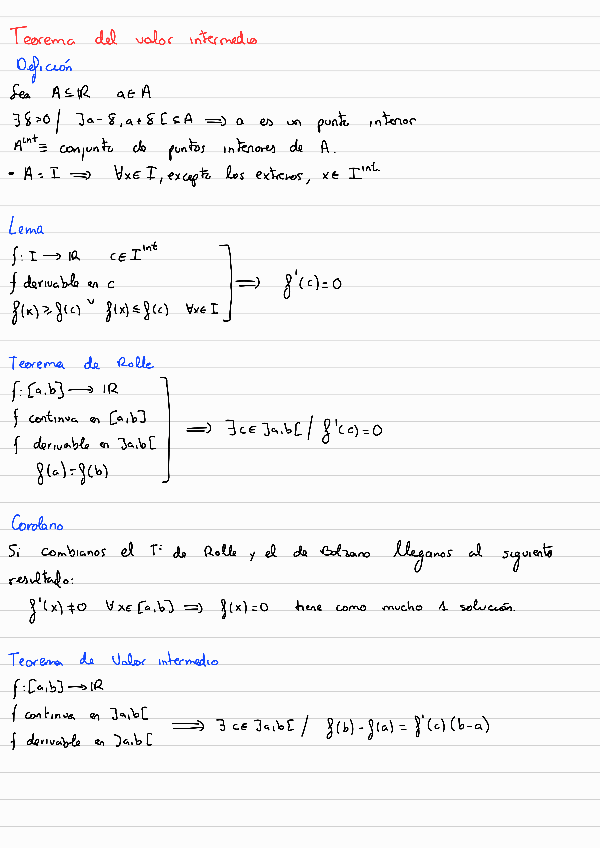 Teorema del valor intermedio
Defición
Sea A ⊆ ℝ a ∈ A
∃ δ>0 / ]a-δ, a+δ[ ⊆ A ⟹ a es un punto interior
A^int ≡ conjunto de puntos interiores de A.
- A = I ⟹ ∀x ∈ I, excepto los extremos, x ∈ I^int
Lema
f: I → ℝ c ∈ I^int
f derivable en c
f(x) ≥ f(c) ∨ f(x) ≤ f(c) ∀x ∈ I ⟹ f'(c) = 0
Teorema de Rolle
f: [a,b] → ℝ
f continua en [a,b]
f derivable en ]a,b[
f(a) = f(b) ⟹ ∃ c ∈ ]a,b[ / f'(c) = 0
Corolario
Si combianos el Tª de Rolle y el de Bolzano lleganos al siguiente
resultado:
f'(x) ≠ 0 ∀x ∈ [a,b] ⟹ f(x) = 0 tiene como mucho 1 solución.
Teorema de Valor intermedio
f: [a,b] → ℝ
f continua en ]a,b[
f derivable en ]a,b[ ⟹ ∃ c ∈ ]a,b[ / f(b) - f(a) = f'(c) (b-a)